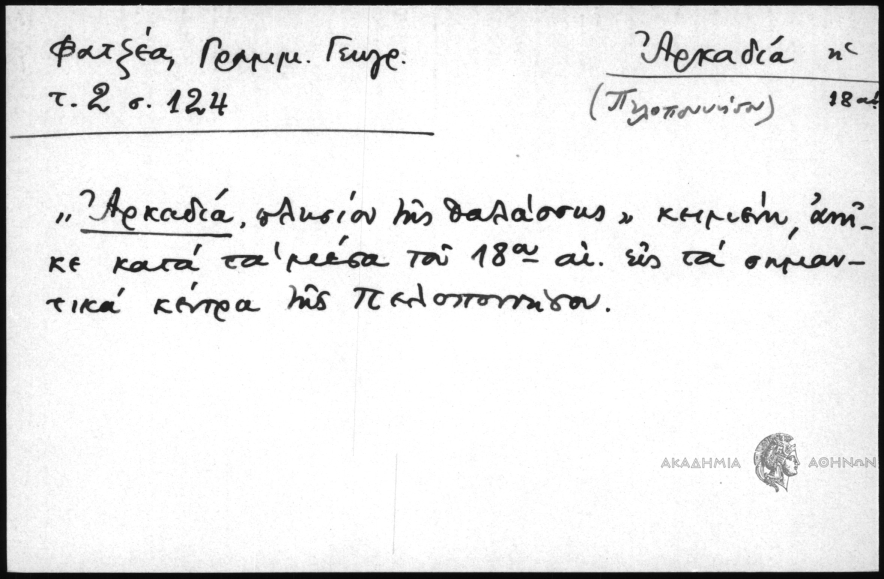 Φατζέα, Γραμμ. Γεωγρ.
τ. 2 σ. 124
Ἀρκαδία ἡ
(Πελοποννήσου) 18 αἰ.
„Ἀρκαδία, πλησίον τῆς θαλάσσης" κειμένη, ἀνῆ-
κε κατά τά μέσα τοῦ 18ου αἰ. εἰς τά σημαν-
τικά κέντρα τῆς Πελοποννήσου.
ΑΚΑΔΗΜΙΑ ΑΘΗΝΩΝ